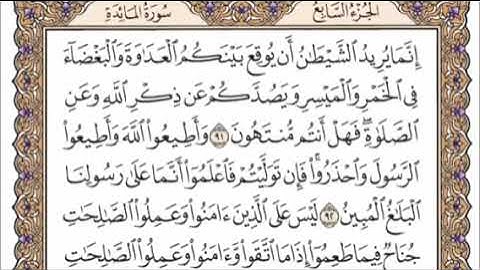 الجزء السابع سورة المائدة
إِنَّمَا يُرِيدُ ٱلشَّيْطَـٰنُ أَن يُوقِعَ بَيْنَكُمُ ٱلْعَدَٰوَةَ وَٱلْبَغْضَآءَ
فِى ٱلْخَمْرِ وَٱلْمَيْسِرِ وَيَصُدَّكُمْ عَن ذِكْرِ ٱللَّهِ وَعَنِ
ٱلصَّلَوٰةِ ۖ فَهَلْ أَنتُم مُّنتَهُونَ ٩١ وَأَطِيعُوا۟ ٱللَّهَ وَأَطِيعُوا۟
ٱلرَّسُولَ وَٱحْذَرُوا۟ ۚ فَإِن تَوَلَّيْتُمْ فَٱعْلَمُوٓا۟ أَنَّمَا عَلَىٰ رَسُولِنَا
ٱلْبَلَـٰغُ ٱلْمُبِينُ ٩٢ لَيْسَ عَلَى ٱلَّذِينَ ءَامَنُوا۟ وَعَمِلُوا۟ ٱلصَّـٰلِحَـٰتِ
جُنَاحٌ فِيمَا طَعِمُوٓا۟ إِذَا مَا ٱتَّقَوا۟ وَّءَامَنُوا۟ وَعَمِلُوا۟ ٱلصَّـٰلِحَـٰتِ